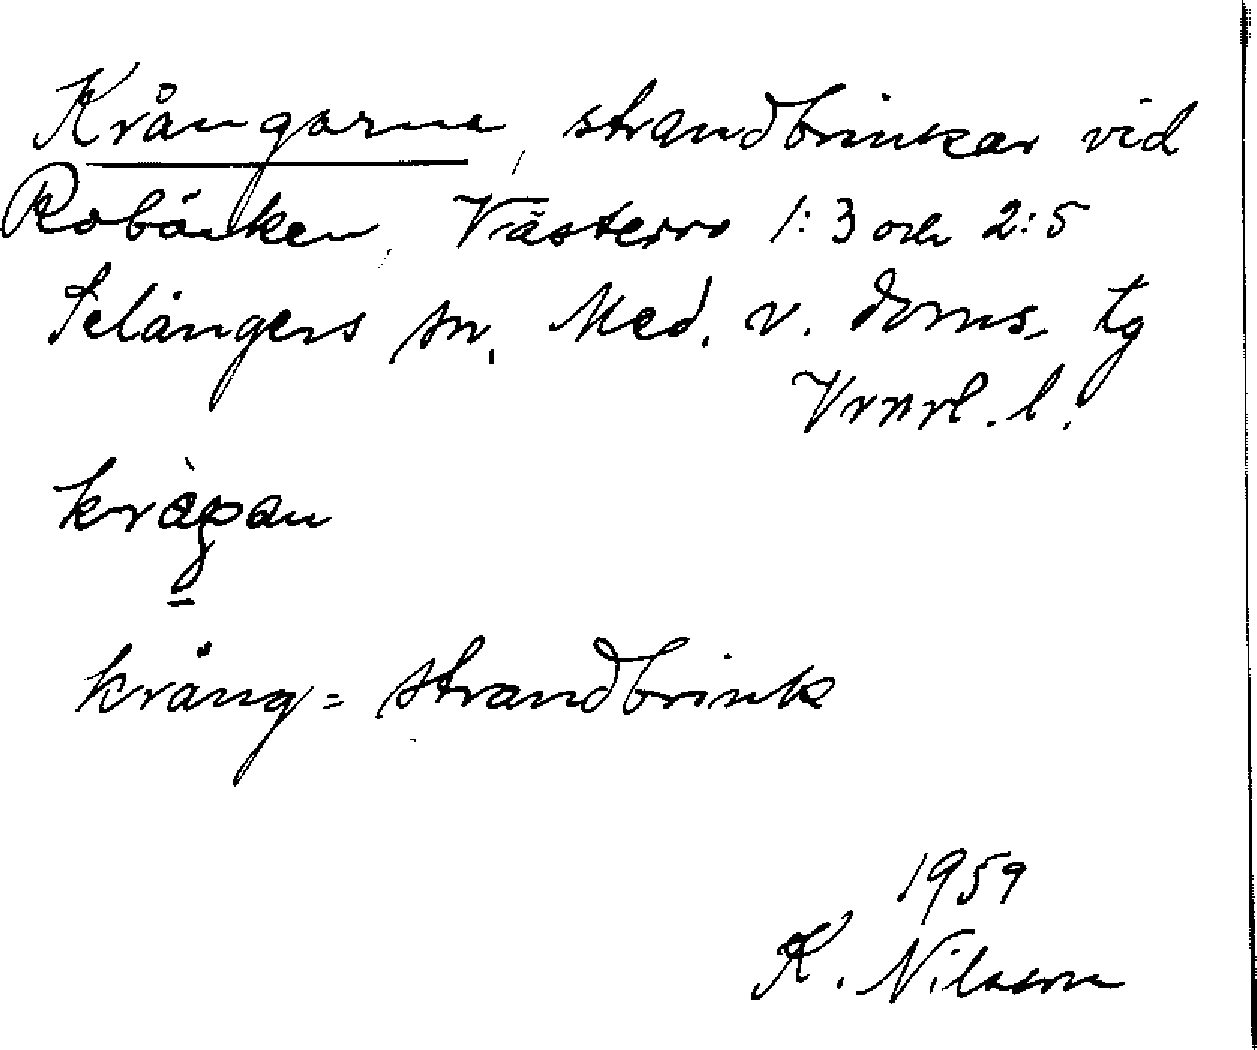 Krångarna, strandbrinkar vid
Robäcken, Västerro 1:3 och 2:5
Selångers sn. Med. v. doms. tg
Vrnrl. l.
kräng = strandbrink
1959
K. Nilsson